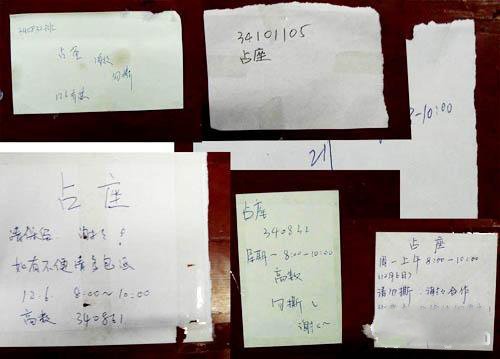 占座
谢谢
勿撕
34101105
占座
-10:00
占座
谢谢!
如有不便请多包涵
12.6. 8:00~10:00
高数 340831
占座
340831
星期一 8:00-10:00
高数
勿撕
谢谢~
占座
周一上午 8:00-10:00
(12月6日)
请勿撕,谢谢合作